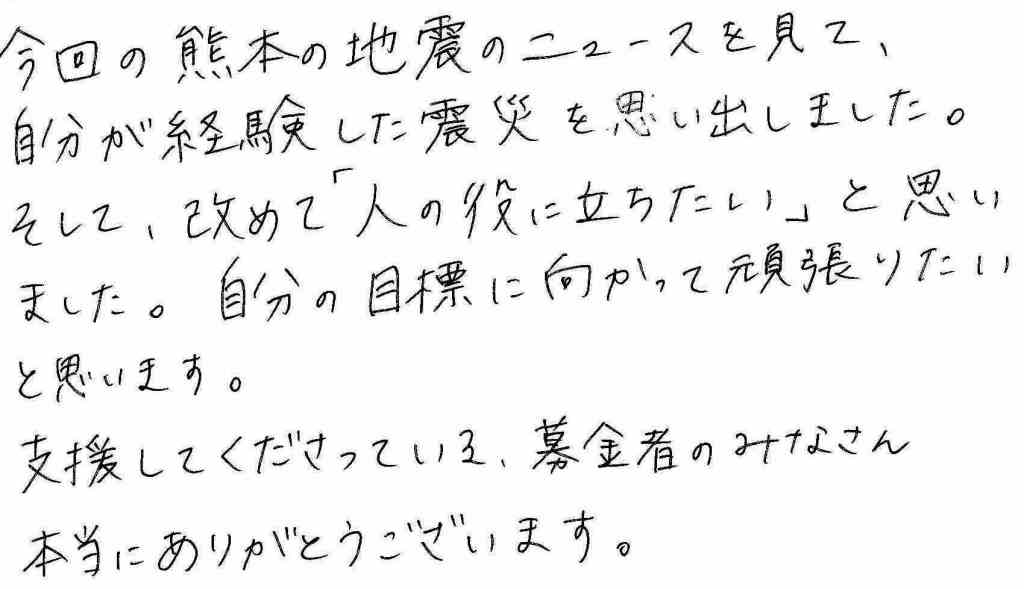 今回の熊本の地震のニュースを見て、
自分が経験した震災を思い出しました。
そして、改めて「人の役に立ちたい」と思い
ました。自分の目標に向かって頑張りたい
と思います。
支援してくださっている、募金者のみなさん
本当にありがとうございます。